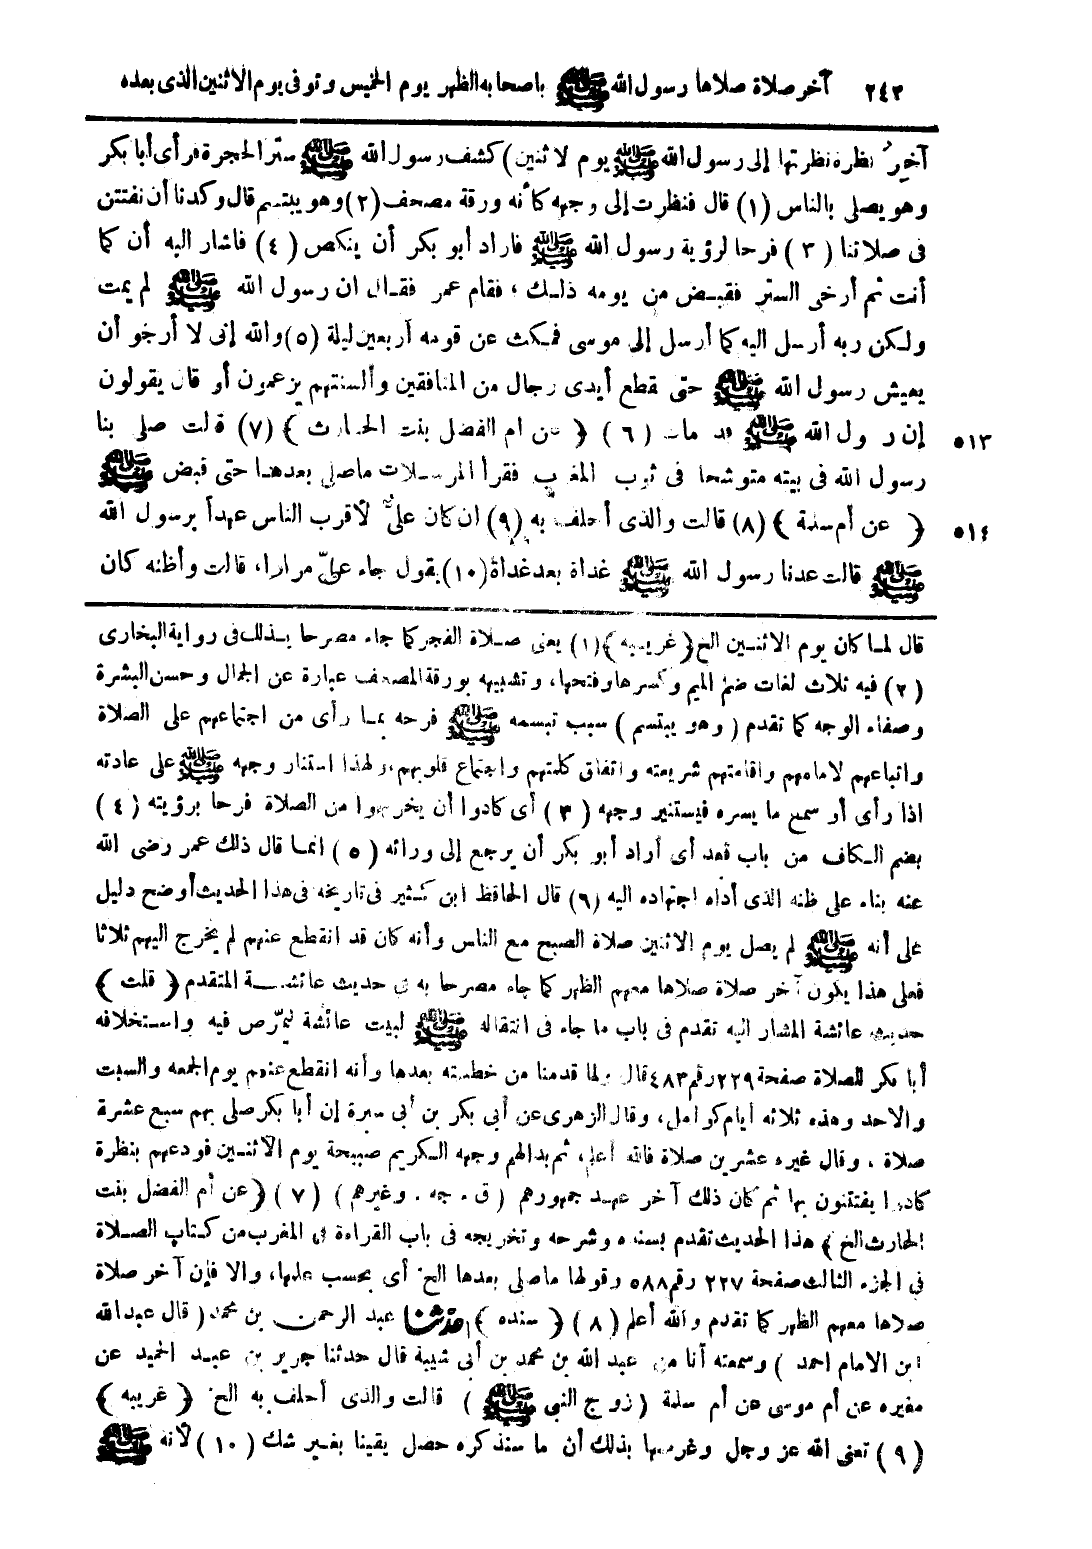 ٢٤٣ آخر صلاة صلاها رسول الله ﷺ باصحابه الظهر يوم الخميس وتوفى يوم الاثنين الذى بعده
آخِرُ نظرة نظرتها إلى رسول الله ﷺ يوم لاثنين) كشف رسول الله ﷺ ستر الحجرة فرأى أبا بكر
وهو يصلى بالناس (١) قال فنظرت إلى وجهه كأنه ورقة مصحف (٢) وهو يبتسم قال وكدنا أن نفتتن
فى صلاتنا (٣) فرحا لرؤية رسول الله ﷺ فاراد أبو بكر أن ينكص (٤) فاشار اليه أن كما
أنت ثم أرخى الستر فقبض من يومه ذلك ، فقام عمر فقال ان رسول الله ﷺ لم يمت
ولكن ربه أرسل اليه كما أرسل إلى موسى فمكث عن قومه أربعين ليلة (٥) والله إنى لا أرجو أن
يعيش رسول الله ﷺ حتى يقطع أيدى رجال من المنافقين وألسنتهم يزعمون أو قال يقولون
إن رسول الله ﷺ قد مات (٦) ﴿ عن ام الفضل بنت الحارث ﴾ (٧) قالت صلى بنا ٥١٣
رسول الله فى بيته متوشحا فى ثوب المغرب فقرأ المرسلات ماصلى بعدها حتى قبض ﷺ
﴿ عن أم سلمة ﴾ (٨) قالت والذى أحلف به (٩) ان كان علىٌّ لأقرب الناس عهداً برسول الله ٥١٤
ﷺ قالت عدنا رسول الله ﷺ غداة بعد غداة (١٠) يقول جاء علىّ مرارا، قالت وأظنه كان
قال لما كان يوم الاثنين الخ ﴿غريبه﴾ (١) يعنى صلاة الفجر كما جاء مصرحا بذلك فى رواية البخارى
(٢) فيه ثلاث لغات ضم الميم وكسرها وفتحها، وتشبيهه بورقة المصحف عبارة عن الجمال وحسن البشرة
وصفاء الوجه كما تقدم (وهو يبتسم) سبب تبسمه ﷺ فرحه بما رأى من اجتماعهم على الصلاة
واتباعهم لامامهم واقامتهم شريعته واتفاق كلمتهم واجتماع قلوبهم، ولهذا استنار وجهه ﷺ على عادته
اذا رأى أو سمع ما يسره فيستنير وجهه (٣) أى كادوا أن يخرجوا من الصلاة فرحا برؤيته (٤)
بضم الكاف من باب قعد أى أراد أبو بكر أن يرجع إلى ورائه (٥) انما قال ذلك عمر رضى الله
عنه بناء على ظنه الذى أداه اجتهاده اليه (٦) قال الحافظ ابن كثير فى تاريخه فى هذا الحديث أوضح دليل
على أنه ﷺ لم يصل يوم الاثنين صلاة الصبح مع الناس وأنه كان قد انقطع عنهم لم يخرج اليهم ثلاثا
فعلى هذا يكون آخر صلاة صلاها معهم الظهر كما جاء مصرحا به فى حديث عائشة المتقدم ﴿ قلت ﴾
حديث عائشة المشار اليه تقدم فى باب ما جاء فى انتقاله ﷺ لبيت عائشة ليمرّض فيه واستخلافه
أبا بكر للصلاة صفحة ٢٢٩ رقم ٤٨٣ قال ولما قدمنا من خطبته بعدها وأنه انقطع عنهم يوم الجمعه والسبت
والاحد وهذه ثلاثه أيام كوامل، وقال الزهرى عن أبى بكر بن أبى سبرة إن أبا بكر صلى بهم سبع عشرة
صلاة ، وقال غيره عشرين صلاة فالله أعلم، ثم بدالهم وجهه الكريم صبيحة يوم الاثنين فودعهم بنظرة
كادوا يفتتنون بها ثم كان ذلك آخر عهد جمهورهم (ق . جه . وغيرهم) (٧) ﴿عن أم الفضل بنت
الحارث الخ ﴾ هذا الحديث تقدم بسنده وشرحه وتخريجه فى باب القراءة فى المغرب من كتاب الصلاة
فى الجزء الثالث صفحة ٢٢٧ رقم ٥٨٨ وقولها ماصلى بعدها الخ أى بحسب علمها، والا فإن آخر صلاة
صلاها معهم الظهر كما تقدم والله أعلم (٨) ﴿ سنده ﴾ حدثنا عبد الرحمن بن محمد (قال عبد الله
ابن الامام احمد) وسمعته أنا من عبد الله بن محمد بن أبى شيبة قال حدثنا جرير بن عبد الحميد عن
مغيره عن أم موسى عن أم سلمة (زوج النبى ﷺ) قالت والذى أحلف به الخ ﴿ غريبه ﴾
(٩) تعنى الله عز وجل وغرضها بذلك أن ما سنذكره حصل يقينا بغير شك (١٠) لأنه ﷺ